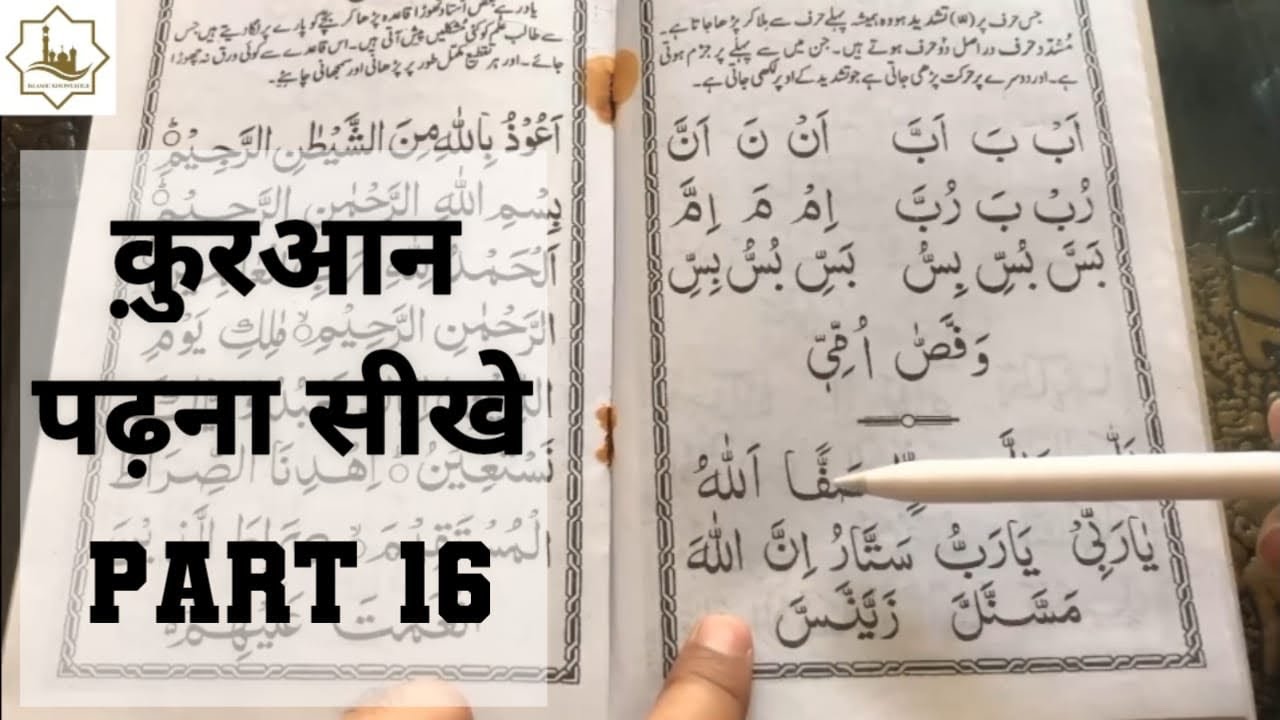 ISLAMIC KNOWLEDGE
جس حرف پر (ّ) تشدید ہو وہ ہمیشہ پہلے حرف سے ملا کر پڑھا جاتا ہے۔
مُشدّد حرف در اصل دو حرف ہوتے ہیں۔ جن میں سے پہلے پر جزم ہوتی
ہے۔ اور دوسرے پر حرکت پڑھی جاتی ہے جو تشدید کے اوپر لکھی جاتی ہے۔
اَبْ بَ اَبَّ اَنْ نَ اَنَّ
رُبْ بَ رُبَّ اِمْ مَ اِمَّ
بَسَّ بُسِّ بِسُّ بَسِّ بُسُّ بِسِّ
وَفَّصّٰ اُمِّیّٖ
صَفًّا اَللّٰهُ
یٰارَبِّیْ یَارَبُّ سَتَّارُ اِنَّ اللّٰهَ
مَسَّنَّلَّ زَیَّنَّسَّ
یاد رہے بعض استاد تھوڑا قاعدہ پڑھا کر بچے کو پارے پر لگا دیتے ہیں جس
سے طالب علم کو کئی مشکلیں پیش آتی ہیں۔ اس قاعدے سے کوئی ورق نہ چھوڑا
جائے۔ اور ہر تقطیع مکمل طور پر پڑھانی اور سمجھانی چاہئیے۔
اَعُوْذُ بِاللّٰهِ مِنَ الشَّیْطٰنِ الرَّجِیْمِ
بِسْمِ اللّٰهِ الرَّحْمٰنِ الرَّحِیْمِ
اَلْحَمْدُ
الرَّحْمٰنِ الرَّحِیْمِ مٰلِكِ یَوْمِ
نَسْتَعِیْنُ اِهْدِنَا الصِّرَاطَ
الْمُسْتَقِیْمَ صِرَاطَ الَّذِیْنَ
اَنْعَمْتَ عَلَیْهِمْ
क़ुरआन
पढ़ना सीखे
PART 16